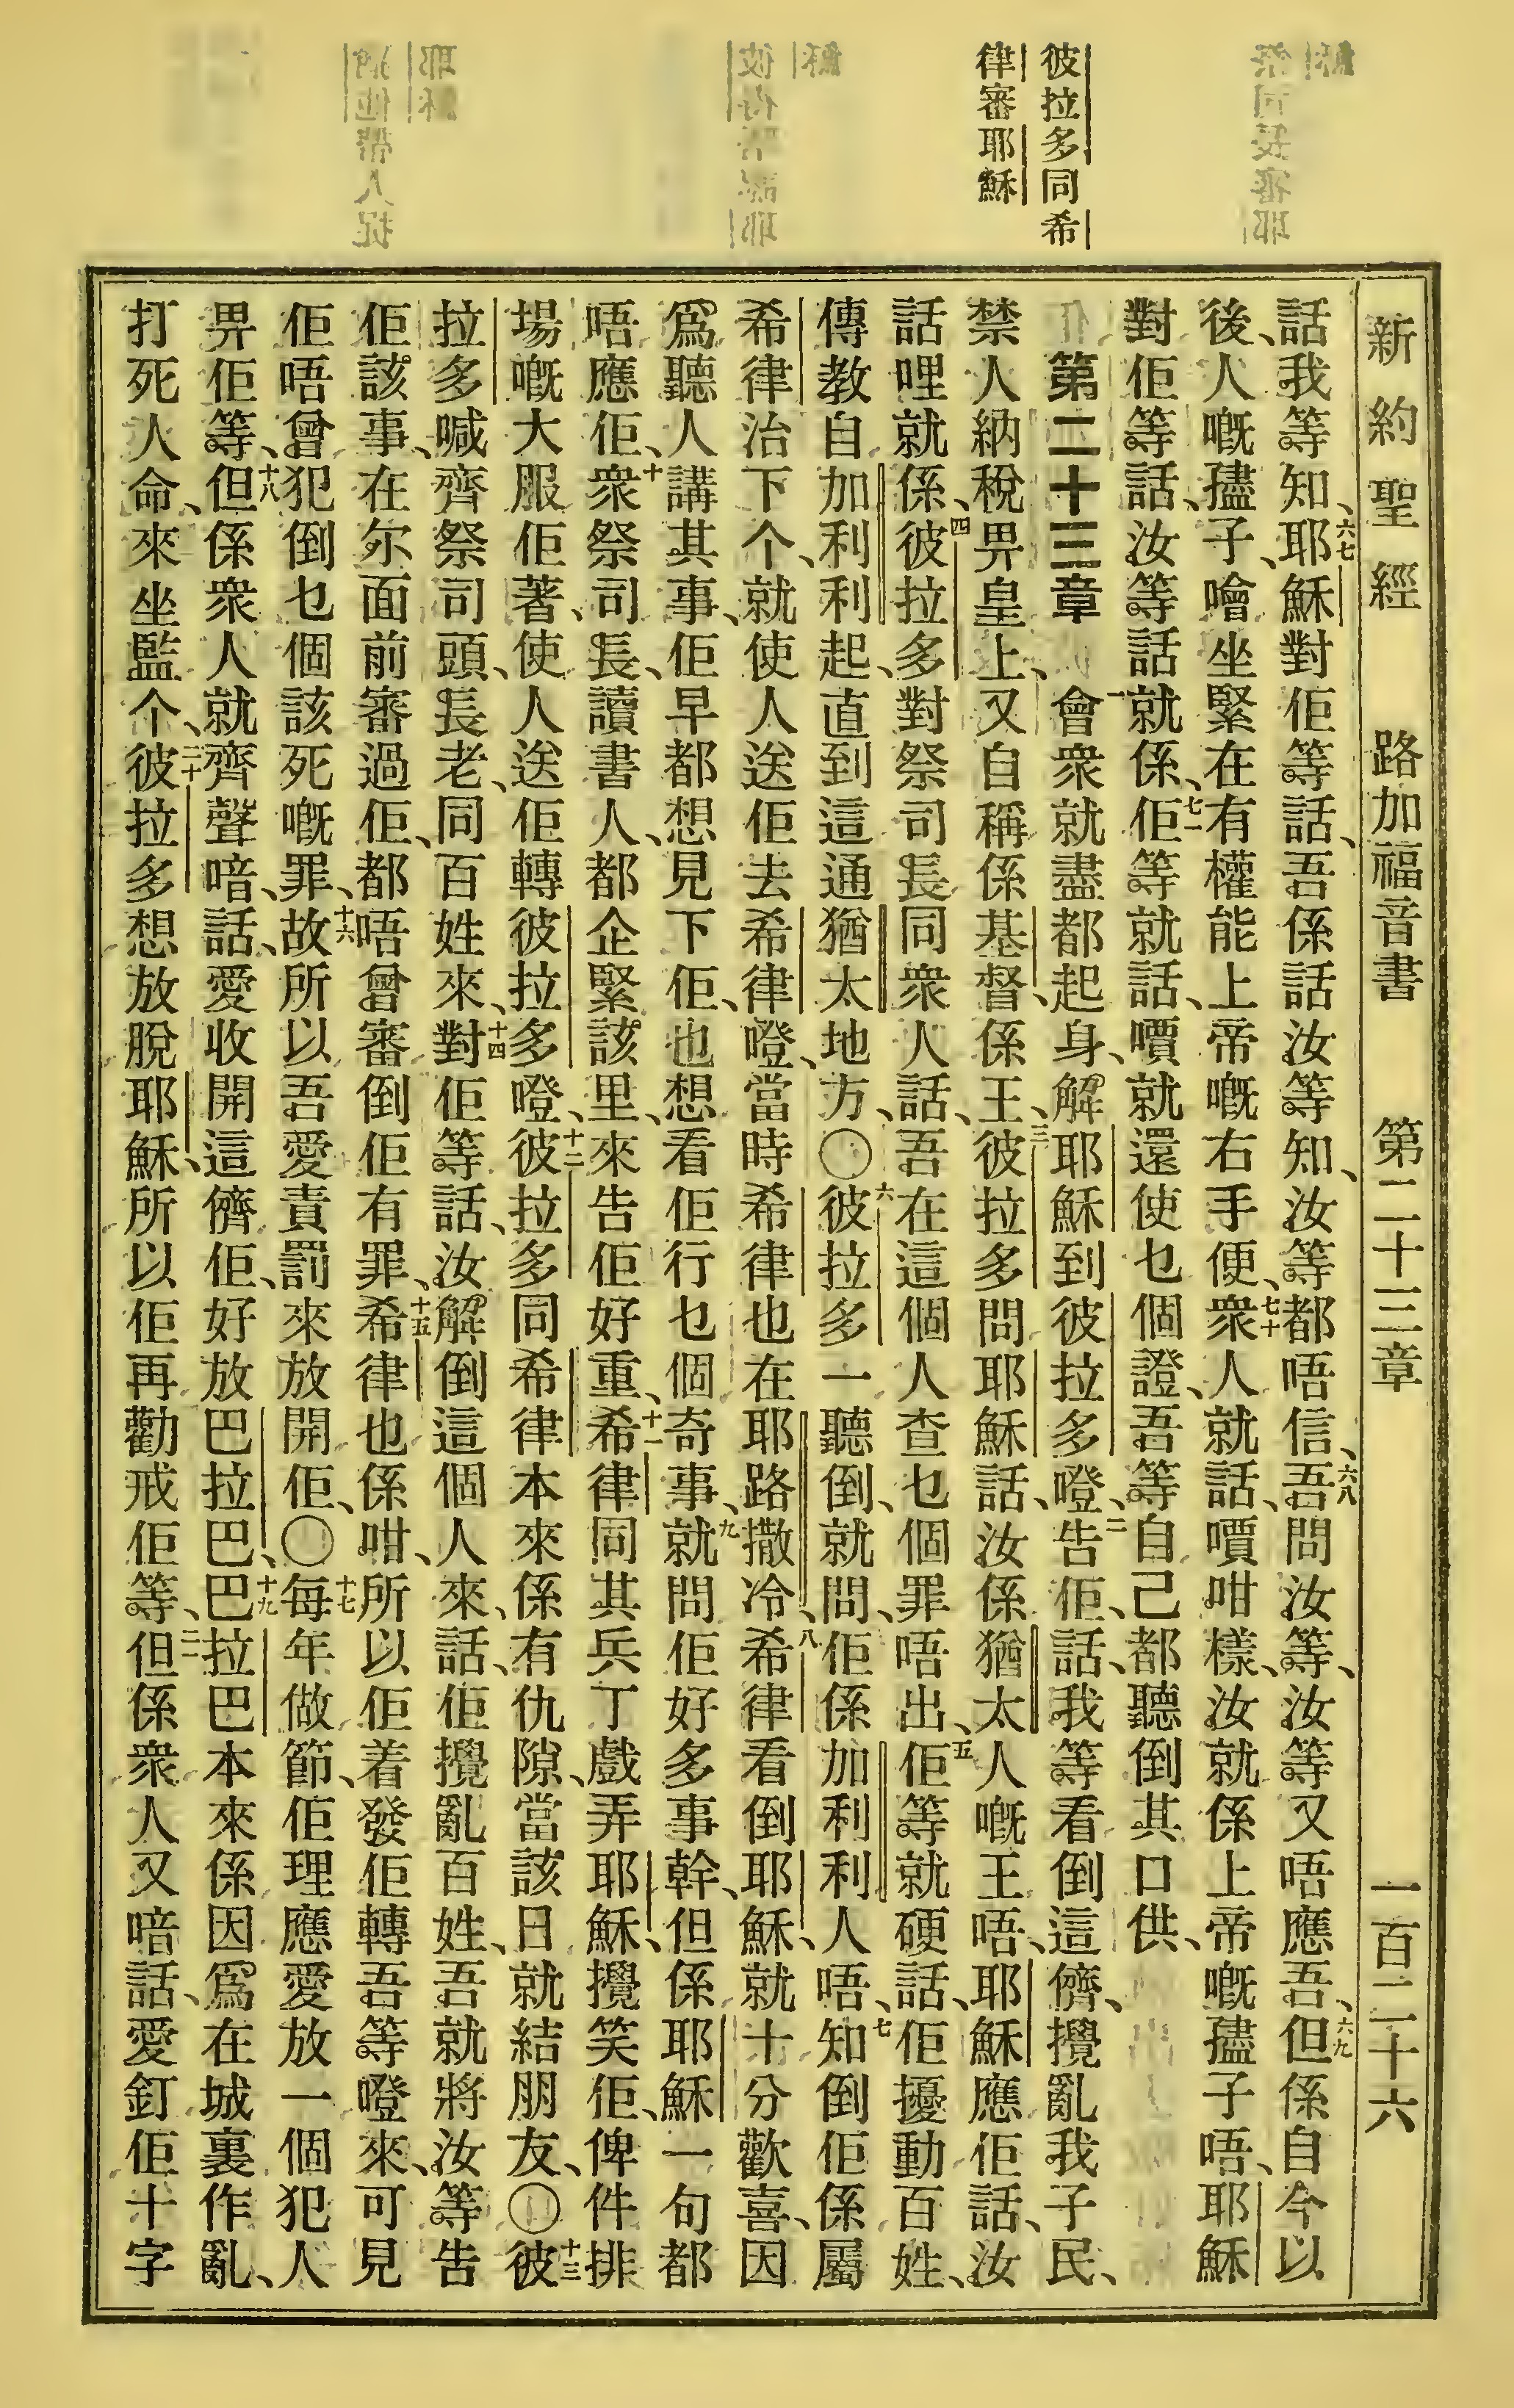 彼拉多同希
律審耶穌
新約聖經 路加福音書 第二十三章 一百二十六
話我等知、六七耶穌對佢等話、吾係話汝等知、汝等都唔信、六八吾問汝等、汝等又唔應吾、六九但係自今以
後、人嘅孻子、噲坐緊在有權能上帝嘅右手便、七十衆人就話、嘳咁樣、汝就係上帝嘅孻子唔、耶穌
對佢等話、汝等話就係、七一佢等就話、嘳就還使乜個證、吾等自己都聽倒其口供、
第二十三章 一會衆就盡都起身、解耶穌到彼拉多噔、二告佢、話、我等看倒這儕、攪亂我子民、
禁人納稅畀皇上、又自稱係基督、係王、三彼拉多問耶穌話、汝係猶太人嘅王唔、耶穌應佢話、汝
話哩就係、四彼拉多對祭司長同衆人話、吾在這個人查乜個罪唔出、五佢等就硬話、佢擾動百姓、
傳教自加利利起、直到這通猶太地方、〇六彼拉多一聽倒、就問、佢係加利利人唔、七知倒佢係屬
希律治下个、就使人送佢去希律噔、當時希律也在耶路撒冷、八希律看倒耶穌、就十分歡喜、因
爲聽人講其事、佢早都想見下佢、也想看佢行乜個奇事、九就問佢好多事幹、但係耶穌一句都
唔應佢、十衆祭司長、讀書人、都企緊該里、來告佢好重、十一希律同其兵丁戲弄耶穌、攪笑佢、俾件排
場嘅大服佢著、使人送佢轉彼拉多噔、十二彼拉多同希律本來係有仇隙、當該日就結朋友、〇十三彼
拉多喊齊祭司頭、長老、同百姓來、十四對佢等話、汝解倒這個人來、話、佢攪亂百姓、吾就將汝等告
佢該事、在尔面前審過佢、都唔曾審倒佢有罪、十五希律也係咁、所以佢着發佢轉吾等噔來、可見
佢唔曾犯倒乜個該死嘅罪、十六故所以吾愛責罰來放開佢、〇十七每年做節、佢理應愛放一個犯人
畀佢等、十八但係衆人就齊聲喑、話、愛收開這儕佢、好放巴拉巴、十九巴拉巴本來係因爲在城裏作亂、
打死人命、來坐監个、二十彼拉多想放脫耶穌、所以佢再勸戒佢等、二一但係衆人又喑話、愛釘佢十字